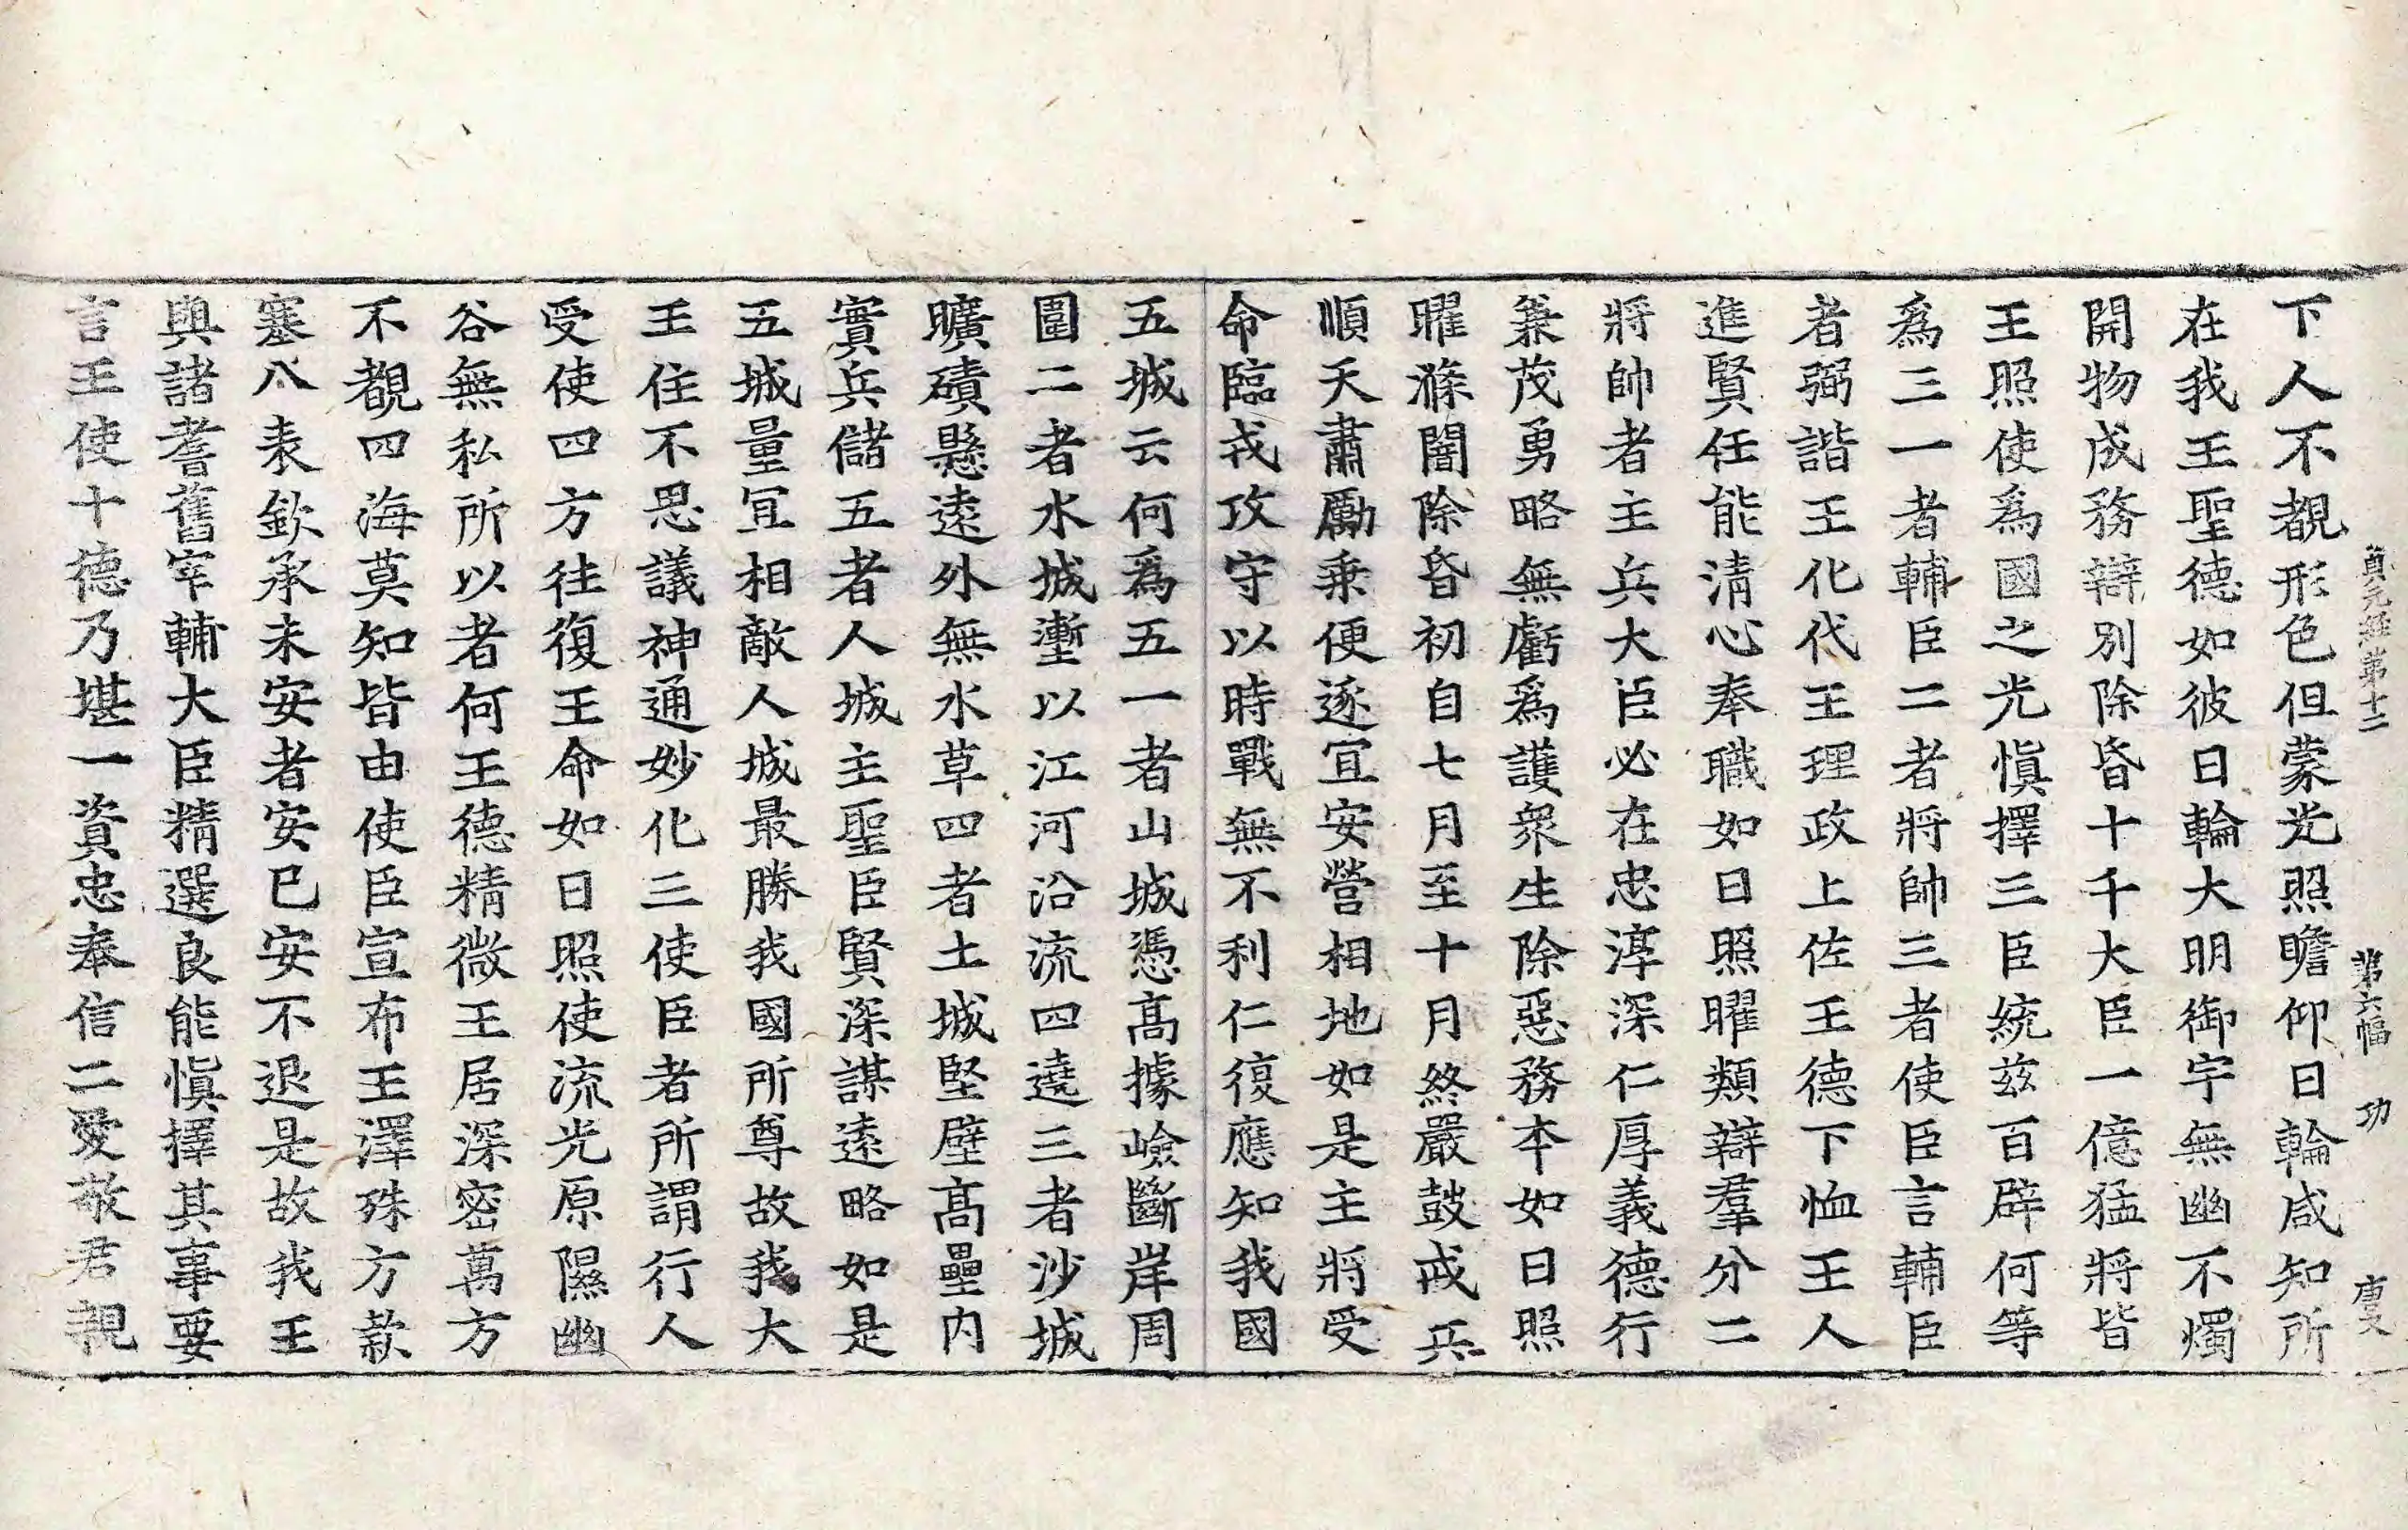 貞元經第十二　第六幅　功　唐文
下人不覩形色但蒙光照瞻仰日輪咸知所
在我王聖德如彼日輪大明御宇無幽不燭
開物成務辯別除昏十千大臣一億猛將皆
王照使爲國之光愼擇三臣統兹百辟何等
爲三一者輔臣二者將帥三者使臣言輔臣
者弼諧王化代王理政上佐王德下恤王人
進賢任能淸心奉職如日照曜類辯羣分二
將帥者主兵大臣必在忠淳深仁厚義德行
兼茂勇略無虧爲護衆生除惡務本如日照
曜滌闇除昏初自七月至十月終嚴鼓戒兵
順天肅勵乗便逐宜安營相地如是主將受
命臨戎攻守以時戰無不利仁復應知我國
五城云何爲五一者山城憑髙據嶮斷岸周
圍二者水城壍以江河沿流四遶三者沙城
曠磧懸遠外無水草四者土城堅壁髙壘内
實兵儲五者人城主聖臣賢深謀遠略如是
五城量宜相敵人城最勝我國所尊故我大
王住不思議神通妙化三使臣者所謂行人
受使四方往復王命如日照使流光原隰幽
谷無私所以者何王德精微王居深密萬方
不覩四海莫知皆由使臣宣布王澤殊方款
塞八表欽承未安者安已安不退是故我王
與諸耆舊宰輔大臣精選良能愼擇其事要
言王使十德乃堪一資忠奉信二愛敬君親